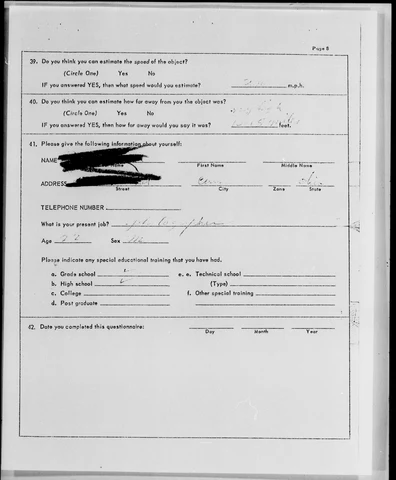 Page 8
39. Do you think you can estimate the speed of the object?
(Circle One) Yes No
IF you answered YES, then what speed would you estimate? m.p.h.
40. Do you think you can estimate how far away from you the object was?
(Circle One) Yes No
IF you answered YES, then how far away would you say it was? feet.
41. Please give the following information about yourself:
NAME Name First Name Middle Name
ADDRESS Street City Zone State
TELEPHONE NUMBER
What is your present job?
Age Sex
Please indicate any special educational training that you have had.
a. Grade school ✓ e. e. Technical school
b. High school ✓ (Type)
c. College f. Other special training
d. Post graduate
42. Date you completed this questionnaire:
Day Month Year